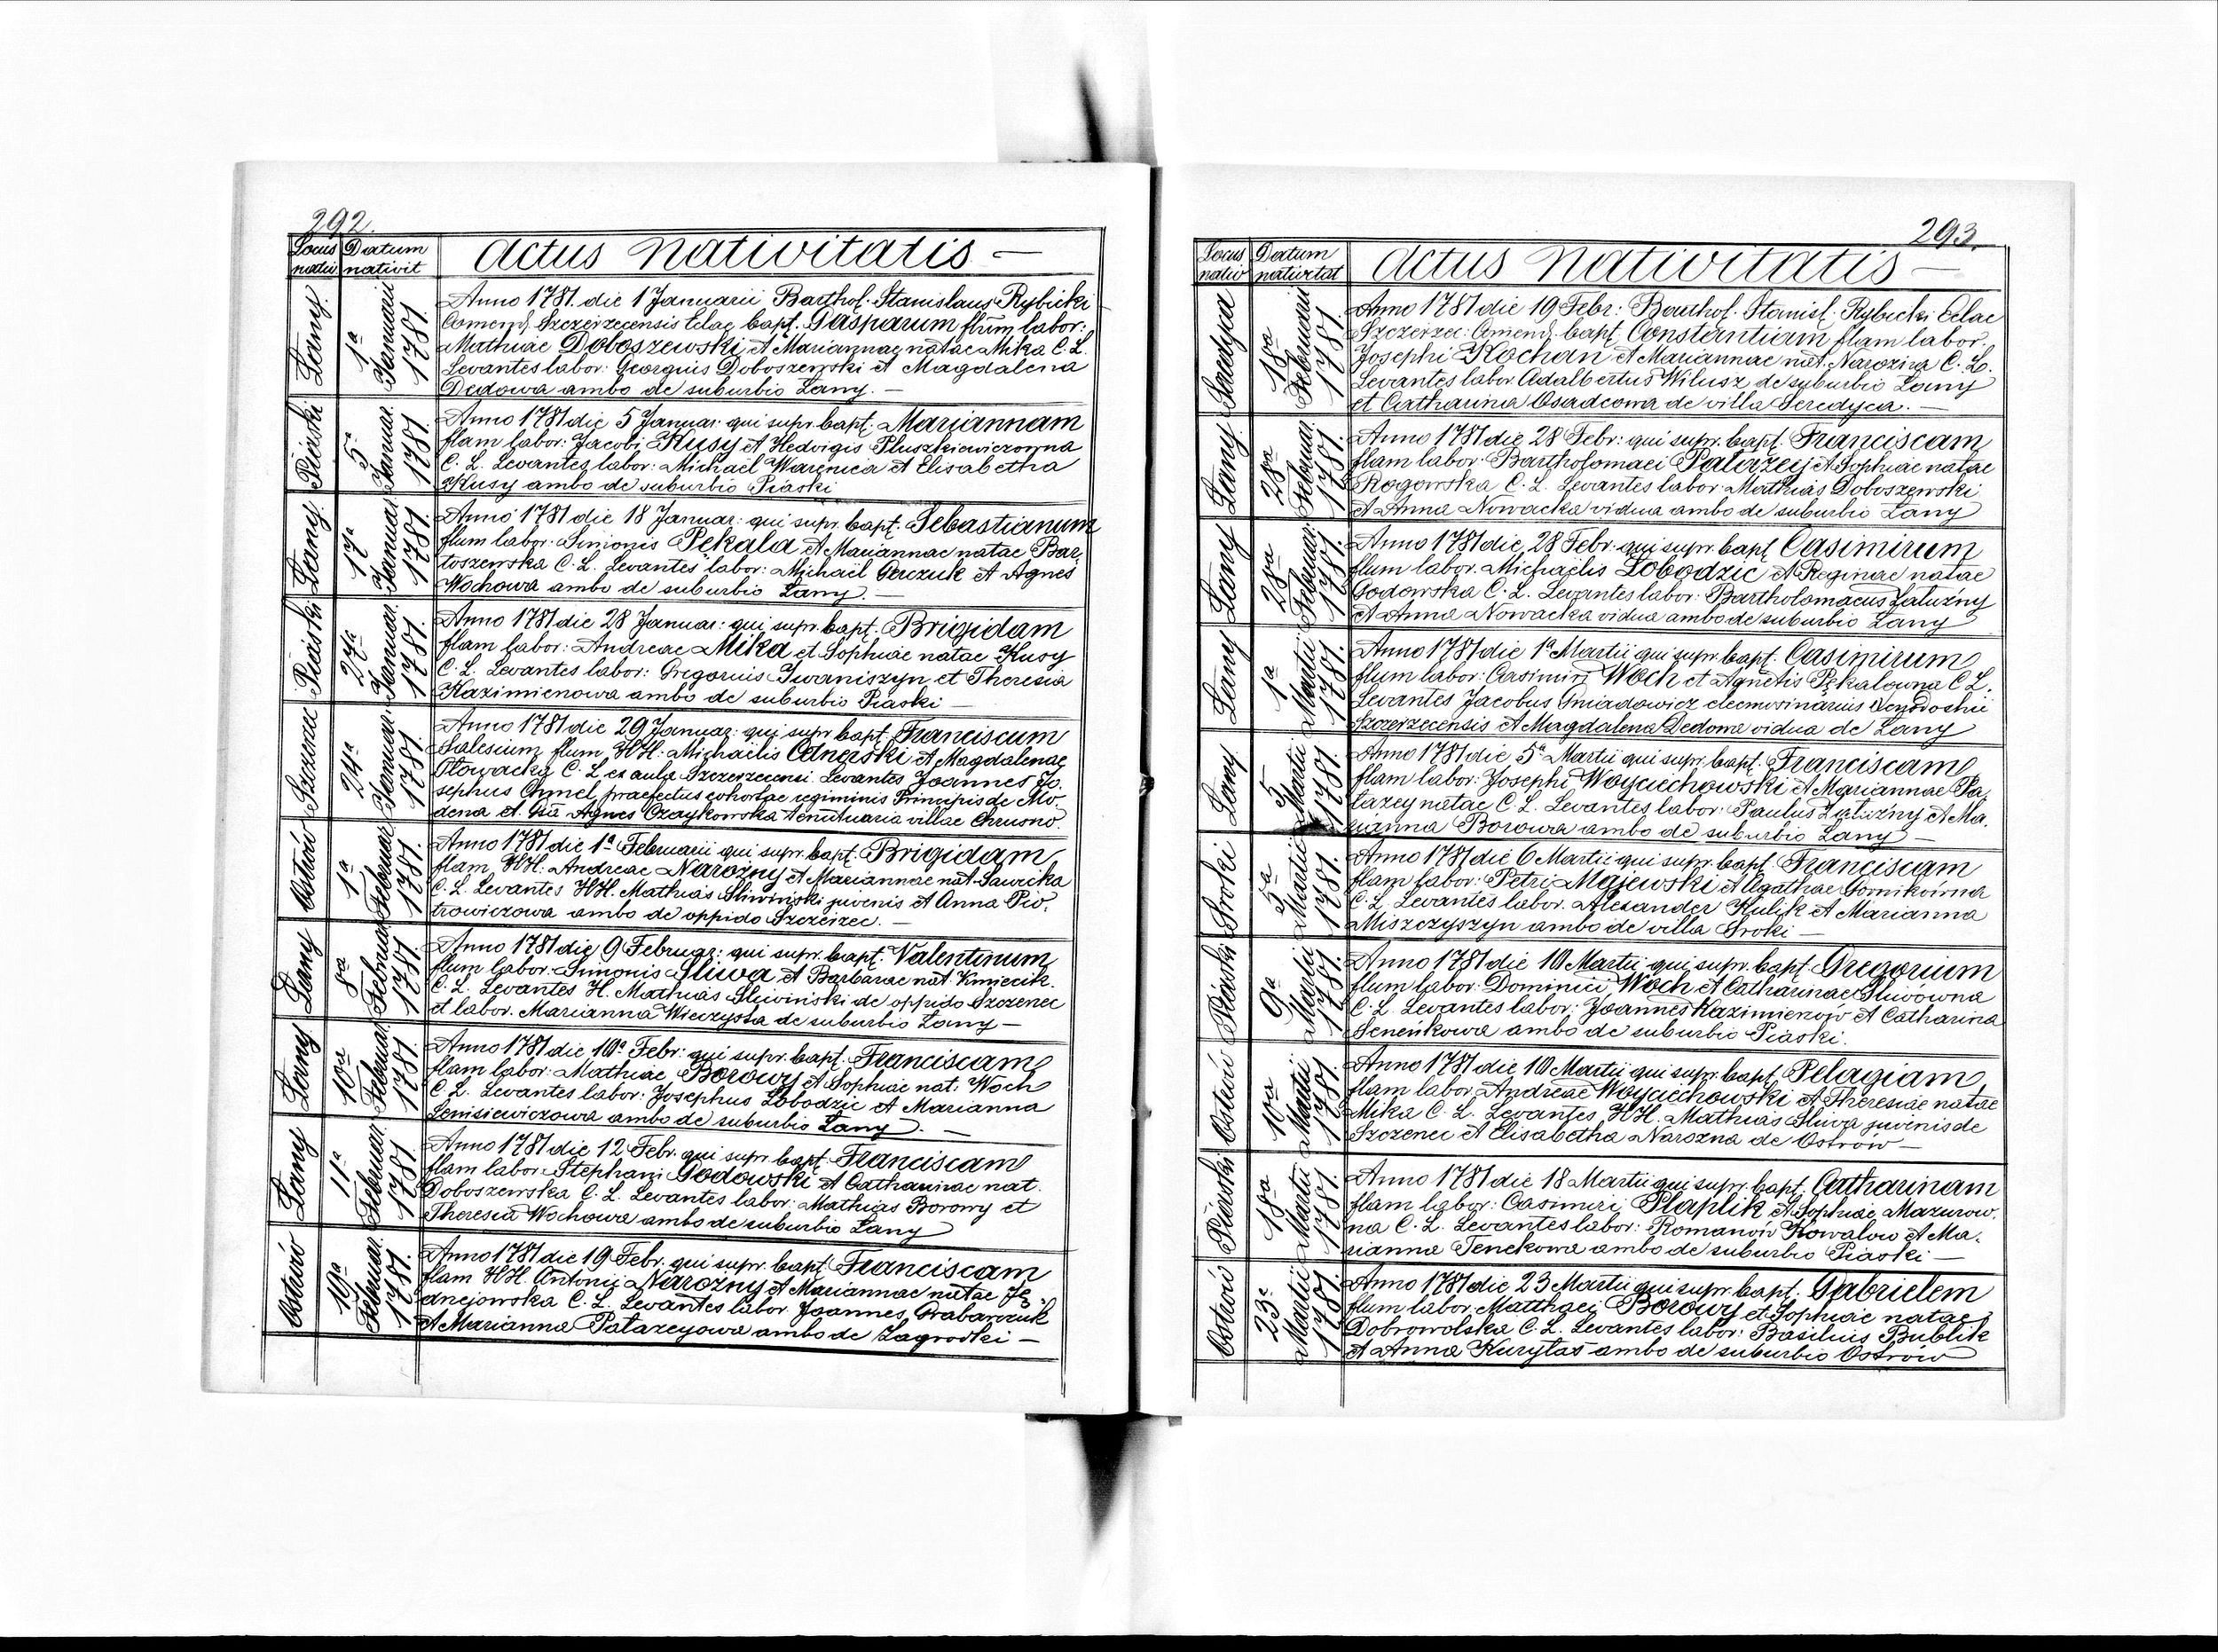 292.
Locus nativ
Datum nativit
Actus nativitatis —
Łany
1ª Januarii 1781.
Anno 1781. die 1 Januarii Barthol. Stanislaus Rybicki
Comend. Szczerzecensis Eclae bapt. Gasparum flum labor:
Mathiae Doboszewski et Mariannae natae Mika C. L.
Levantes labor: Georgius Doboszewski et Magdalena
Dedowa ambo de suburbio Łany. —
Piaski
5ª Januar. 1781.
Anno 1781 die 5 Januar: qui supr. bapt. Mariannam
flam labor: Jacobi Kusy et Hedvigis Pluszkiewiczowna
C. L. Levantes labor: Michaël Warenica et Elisabetha
Kusy ambo de suburbio Piaski
Łany
17ª Januar. 1781.
Anno 1781 die 18 Januar: qui supr. bapt. Sebastianum
flum labor. Simonis Pekala et Mariannae natae Bar
toszewska C. L. Levantes labor: Michaël Geuzuk et Agnes
Wochowa ambo de suburbio Łany. —
Piaski
27ª Januar. 1781.
Anno 1781 die 28 Januar: qui supr. bapt. Brigidam
flam labor: Andreae Mika et Sophiae natae Kusy
C. L. Levantes labor: Gregorius Iwaniszyn et Theresia
Kazimierowa ambo de suburbio Piaski —
Szczerzec
24ª Januar. 1781.
Anno 1781 die 29 Januar: qui supr. bapt. Franciscum
Salesium flum HH. Michaëlis Cdnerski et Magdalenae
Słowacka C. L. ex aula Szczerzecensi. Levantes Joannes Jo.
sephus Chmel praefectus cohortae regiminis Principis de Mo-
dena et Gsa Agnes Czaykowska tenutuaria villae Chrusno.
Ostrów
1ª Februar 1781.
Anno 1781 die 1ª Februarii qui supr. bapt. Brigidam
flam HH. Andreae Narożny et Mariannae nat. Sawicka
C. L. Levantes HH. Mathias Sliwinski juvenis et Anna Pio.
trowiczowa ambo de oppido Szczerzec. —
Łany
8ª Februar 1781.
Anno 1781 die 9 Februar: qui supr. bapt. Valentinum
flum labor. Simonis Sliwa et Barbarae nat. Kmiecik.
C. L. Levantes H. Mathias Sliwiński de oppido Szczerzec
et labor. Marianna Wieczysta de suburbio Łany —
Łany
10ª Februar. 1781.
Anno 1781 die 10ª Febr: qui supr. bapt. Franciscam
flam labor: Mathiae Borowy et Sophiae nat. Woch
C. L. Levantes labor: Josephus Łobodzic et Marianna
Denisiewiczowa ambo de suburbio Łany. —
Łany
11ª Februar. 1781.
Anno 1781 die 12 Febr. qui supr. bapt. Franciscam
flam labor. Stephani Godowski et Catharinae nat.
Doboszewska C. L. Levantes labor: Mathias Borowy et
Theresia Wochowa ambo de suburbio Łany
Ostrów
19ª Februar. 1781.
Anno 1781 die 19 Febr. qui supr. bapt. Franciscam
flam HH. Antonii Narożny et Mariannae natae Ję.
dnejowska C. L. Levantes labor. Joannes Grabarczuk
et Marianna Patazeyowa ambo de Zagrodki —
293.
Locus nativ
Datum nativitat
Actus Nativitatis —
Seredyca
18ª Februar 1781.
Anno 1781 die 19 Febr: Barthol. Stanisl. Rybicki Eclae
Szczerzec: Comend. bapt. Constantiam flam labor.
Josephi Kochan et Mariannae nat. Narozna C. L.
Levantes labor. Adalbertus Wilusz de suburbio Łany
et Catharina Osadcowa de villa Seredyca. —
Łany
28ª Februar. 1781.
Anno 1781 die 28 Febr: qui supr. bapt. Franciscam
flam labor. Bartholomaei Patazey et Sophiae natae
Rogowska C. L. Levantes labor. Mathias Doboszewski
et Anna Nowacka vidua ambo de suburbio Łany
Łany
28ª Februar. 1781.
Anno 1781 die 28 Febr. qui supr. bapt. Casimirum
flum labor. Michaëlis Łobodzic et Reginae natae
Godowska C. L. Levantes labor: Bartholomaeus Załuzny
et Anna Nowacka vidua ambo de suburbio Łany
Łany
1ª Martii 1781.
Anno 1781 die 1ª Martii qui supr. bapt. Casimirum
flum labor: Casimiri Woch et Agnetis Pękalowna C. L.
Levantes Jacobus Gniadowicz eleemosinarius
Szczerzecensis et Magdalena Dedowa vidua de Łany
Łany
5 Martii 1781.
Anno 1781 die 5ª Martii qui supr. bapt. Franciscam
flam labor: Josephi Woyciechowski et Mariannae Pa.
tazey natae C. L. Levantes labor: Paulus Załuzny et Ma.
rianna Borowa ambo de suburbio Łany —
Sroki
5ª Martii 1781.
Anno 1781 die 6 Martii qui supr. bapt. Franciscam
flam labor: Petri Majewski et Agathae Gornikowna
C. L. Levantes labor. Alexander Kulik et Marianna
Miszczyszyn ambo de villa Sroki —
Piaski
9ª Martii 1781.
Anno 1781 die 10 Martii qui supr. bapt. Gregorium
flum labor: Dominici Woch et Catharinae Sliwówna
C. L. Levantes labor: Joannes Kazimierow et Catharina
Seneńkowa ambo de suburbio Piaski.
Ostrów
10ª Martii 1781.
Anno 1781 die 10 Martii qui supr. bapt. Pelagiam
flam labor. Andreae Woyciechowski et Theresiae natae
Mika C. L. Levantes HH. Mathias Sliwa juvenis de
Szczerzec et Elisabetha Narozna de Ostrów —
Piaski
18ª Martii 1781.
Anno 1781 die 18 Martii qui supr. bapt. Catharinam
flam labor: Casimiri Płaplik et Sophiae Mazurow.
na C. L. Levantes labor: Romanów Kowalow et Ma.
rianna Tenekowa ambo de suburbio Piaski —
Ostrów
23ª Martii 1781.
Anno 1781 die 23 Martii qui supr. bapt. Gabrielem
flum labor. Matthaei Borowy et Sophiae natae
Dobrowolska C. L. Levantes labor: Basilius Bublik
et Anna Kurylas ambo de suburbio Ostrów